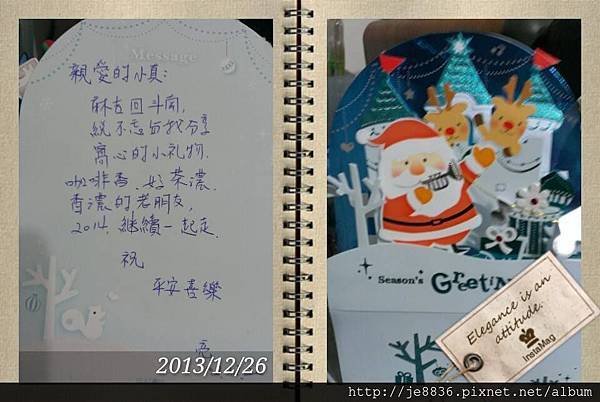 Message
親愛的小真:
麻吉回斗南,
總不忘与我分享
窩心的小礼物.
咖啡香.好茶濃.
香濃的老朋友,
2014.繼續一起走.
祝
平安喜樂
2013/12/26
Season's Greetin
Elegance is an
attitude.
InstaMag
http://je8836.pixnet.net/album